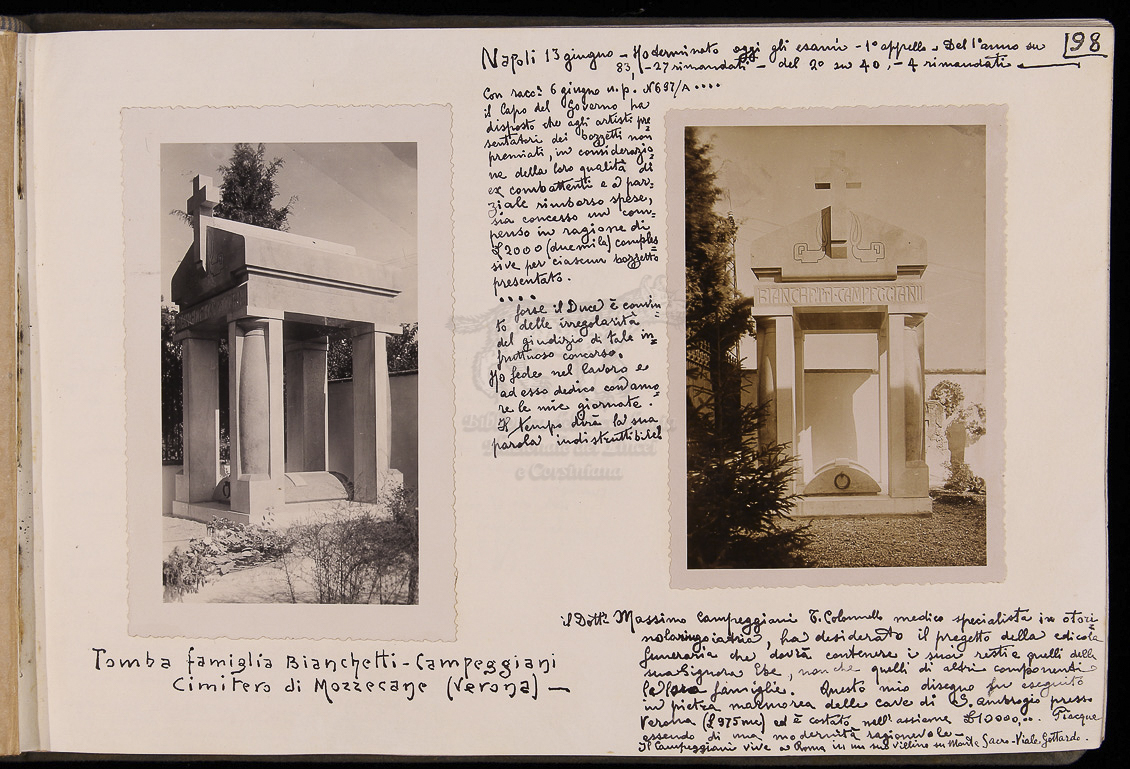 198
Napoli 13 giugno - Ho terminato oggi gli esami - 1° appello. Del 1° anno su
83, - 27 rimandati - del 2° su 40, - 4 rimandati
Con racc. 6 giugno u.p. N 697/A ....
il Capo del Governo ha
disposto che agli artisti pre=
sentatori dei bozzetti non
premiati, in considerazio=
ne della loro qualità di
ex combattenti e a par=
ziale rimborso spese,
sia concesso un com=
penso in ragione di
£2000 (duemila) comples=
sive per ciascun bozzetto
presentato.
....
forse il Duce è convin=
to delle irregolarità
del giudizio di tale in=
fruttuoso concorso.
Ho fede nel lavoro e
ad esso dedico con amo=
re le mie giornate.
Il tempo dirà la sua
parola indistruttibile!
BIANCHETTI-CAMPEGGIANI
Tomba famiglia Bianchetti-Campeggiani
Cimitero di Mozzecane (Verona) -
il Dott. Massimo Campeggiani T. Colonnello medico specialista in otori=
nolaringoiatria, ha desiderato il progetto della edicola
funeraria che dovrà contenere i suoi resti e quelli della
sua Signora Ebe, nonchè quelli di altri componenti
la loro famiglie. Questo mio disegno fu eseguito
in pietra marmorea delle cave di S. Ambrogio presso
Verona (£975 mc) ed è costato nell'assieme £10000,.. Piacque
essendo di una modernità ragionevole -
Il Campeggiani vive a Roma in un suo villino su Monte Sacro - Viale Gottardo.